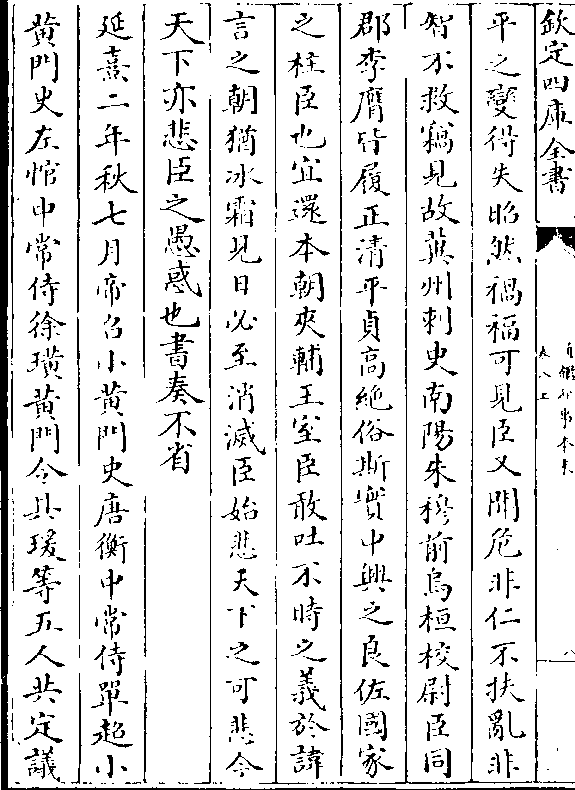 欽定四庫全書
平之變得失昭然禍福可見臣又聞危非仁不扶亂非
智不救竊見故冀州刺史南陽朱穆前烏桓校尉臣同
郡李膺皆履正清平貞高絶俗斯實中興之良佐國家
之柱臣也宜還本朝夾輔王室臣敢吐不時之義於諱
言之朝猶冰霜見日必至消滅臣始悲天下之可悲今
天下亦悲臣之愚惑也書奏不省
延熹二年秋七月帝召小黄門史唐衡中常侍單超小
黄門史左悺中常侍徐璜黄門令具瑗等五人共定議